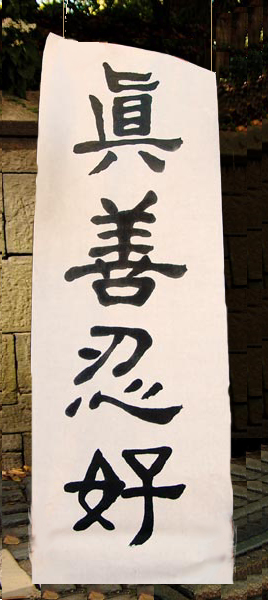 眞善忍好